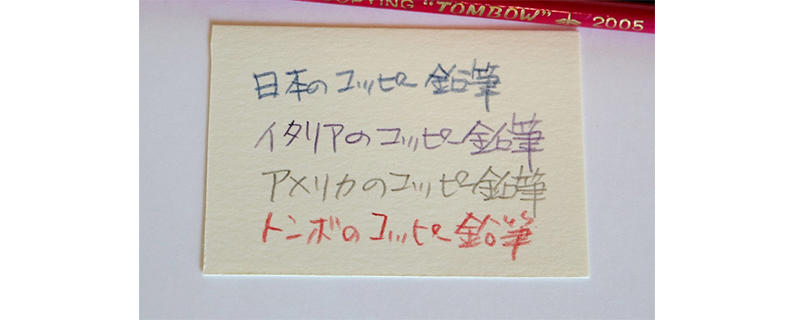 COPYING "TOMBOW" 2005
日本のコッピー鉛筆
イタリアのコッピー鉛筆
アメリカのコッピー鉛筆
トンボのコッピー鉛筆